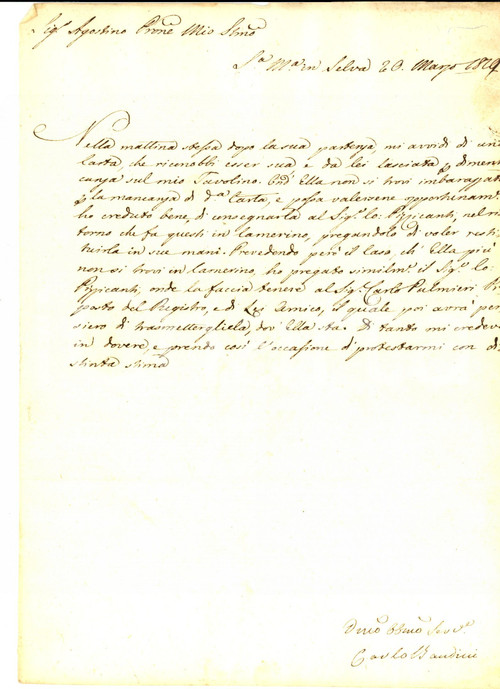 Sig.r Agostino Prone Mio Stmo
S.a M.a in Selva 20. Marzo 1819
Nella mattina stessa dopo la sua partenza, mi avvidi di una
Carta che riconobbi esser sua e da lei lasciata p dimenti
canza sul mio Tavolino. Ond' Ella non si trovi imbarazzata
p la mancanza di d.a Carta, e possa valersene opportunam.e
ho creduto bene, di consegnarla al Sig.r Co. Pizzicanti, nel ri
torno che fa questi in Camerino, pregandolo di voler resti
tuirla in sue mani. Prevedendo però il caso, ch' Ella più
non si trovi in Camerino, ho pregato similm.e il Sig.r Co.
Pizzicanti, onde la faccia tenere al Sig.r Carlo Palmieri Pre
posto del Registro, e di Lei Amico, il quale poi avrà pen
siero di trasmettergliela, dov' Ella sta. Di tanto mi credevo
in dovere, e prendo così l'occasione di protestarmi con di
stinta stima
Dmo Obmo Serv.e
Carlo Bandini